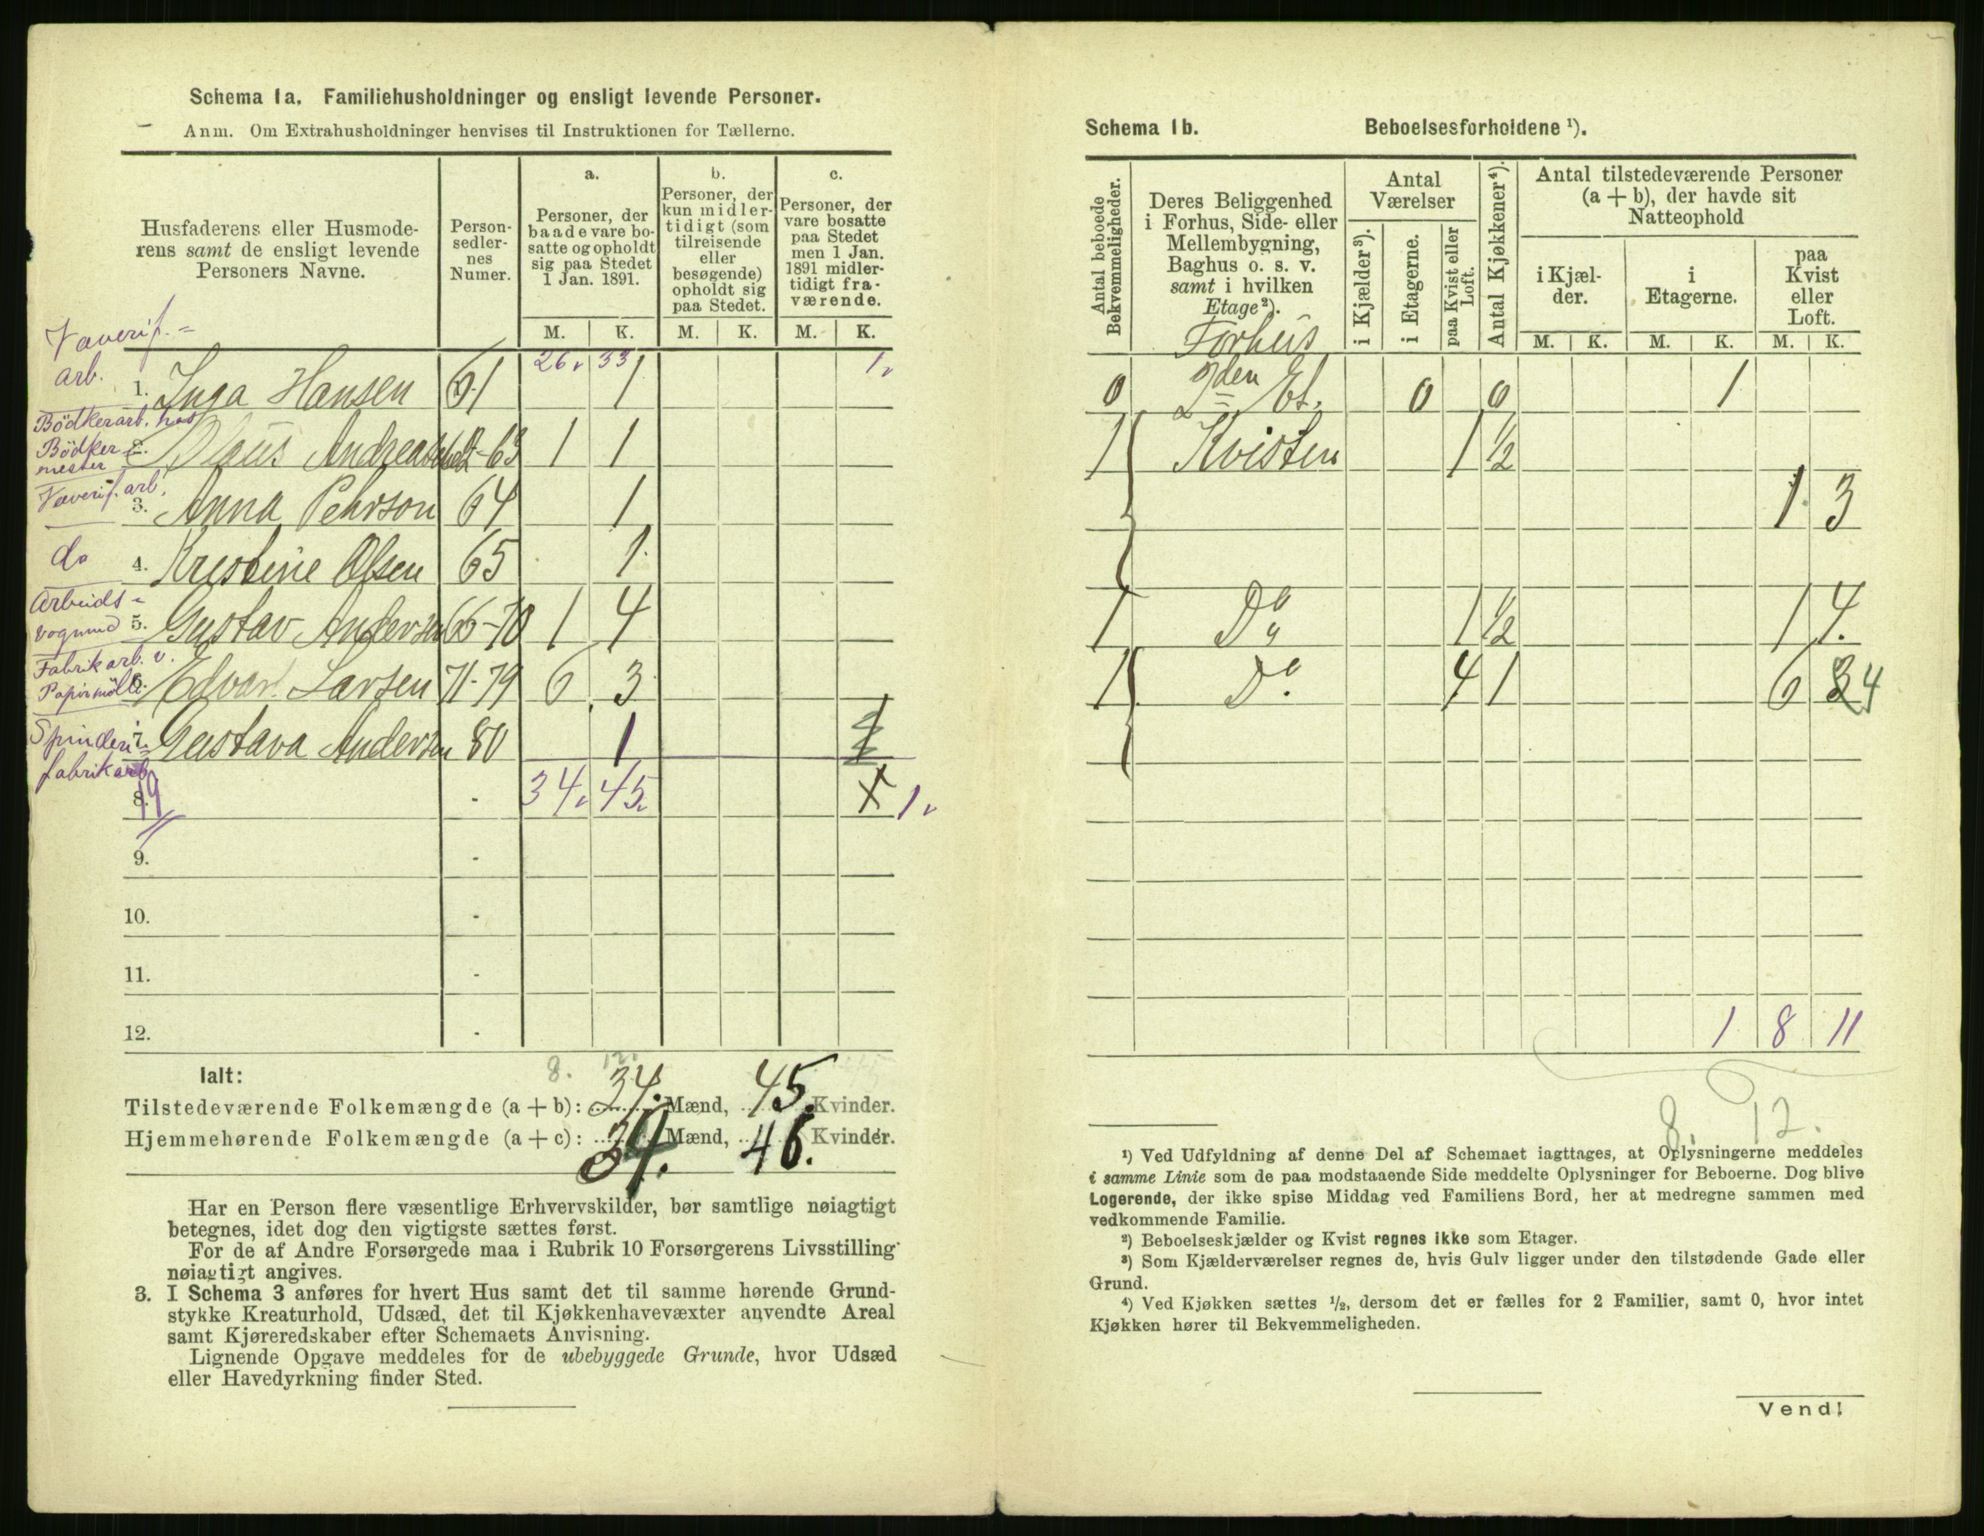 Schema 1a. Familiehusholdninger og ensligt levende Personer.
Anm. Om Extrahusholdninger henvises til Instruktionen for Tællerne.
Husfaderens eller Husmode-
rens samt de ensligt levende
Personers Navne.
Person-
sedler-
nes
Numer.
a.
Personer, der
baade vare bo-
satte og opholdt
sig paa Stedet
1 Jan. 1891.
b.
Personer, der
kun midler-
tidigt (som
tilreisende
eller
besøgende)
opholdt sig
paa Stedet.
c.
Personer, der
vare bosatte
paa Stedet
men 1 Jan.
1891 midler-
tidigt fra-
værende.
M. K. M. K. M. K.
Væverif.=
arb.
26. 33 1.
1. Inga Hansen 61 1
Bödkerarb. hos
Bödker
mester
2. Klaus Andreas 62-63 1 1
Væverif. arb.
3. Anna Pehrson 64 1
do
4. Kristine Olsen 65 1
Arbeids=
vogmnd
5. Gustav Andersen 66-70 1 4
Fabrikarb. v.
Papirmölle
6. Edvart Larsen 71-79 6 3
Spinderi=
fabrikarb.
7. Gustava Andersen 80 1
8. 34. 45. 1.
9.
10.
11.
12.
Ialt: 8. 12.
Tilstedeværende Folkemængde (a + b): 34. Mænd, 45. Kvinder.
Hjemmehørende Folkemængde (a + c): 34. Mænd, 46. Kvinder.
Har en Person flere væsentlige Erhvervskilder, bør samtlige nøiagtigt
betegnes, idet dog den vigtigste sættes først.
For de af Andre Forsørgede maa i Rubrik 10 Forsørgerens Livsstilling
nøiagtigt angives.
3. I Schema 3 anføres for hvert Hus samt det til samme hørende Grund-
stykke Kreaturhold, Udsæd, det til Kjøkkenhavevæxter anvendte Areal
samt Kjøreredskaber efter Schemaets Anvisning.
Lignende Opgave meddeles for de ubebyggede Grunde, hvor Udsæd
eller Havedyrkning finder Sted.
Schema 1b. Beboelsesforholdene ¹).
Antal beboede
Bekvemmeligheder.
Deres Beliggenhed
i Forhus, Side- eller
Mellembygning,
Baghus o. s. v.
samt i hvilken
Etage²).
Antal
Værelser
i Kjælder³).
i Etagerne.
paa Kvist eller
Loft.
Antal Kjøkkener⁴).
Antal tilstedeværende Personer
(a + b), der havde sit
Natteophold
i Kjæl-
der.
i
Etagerne.
paa
Kvist
eller
Loft.
M. K. M. K. M. K.
Forhus
0 2den Et. 0 0 1
1 Kvisten 1 ½
1 3
1 Do 1 ½ 1 4.
1 Do. 4 1 6 3 4
1 8 11
8 12.
¹) Ved Udfyldning af denne Del af Schemaet iagttages, at Oplysningerne meddeles
i samme Linie som de paa modstaaende Side meddelte Oplysninger for Beboerne. Dog blive
Logerende, der ikke spise Middag ved Familiens Bord, her at medregne sammen med
vedkommende Familie.
²) Beboelseskjælder og Kvist regnes ikke som Etager.
³) Som Kjælderværelser regnes de, hvis Gulv ligger under den tilstødende Gade eller
Grund.
⁴) Ved Kjøkken sættes ½, dersom det er fælles for 2 Familier, samt 0, hvor intet
Kjøkken hører til Bekvemmeligheden.
Vend!